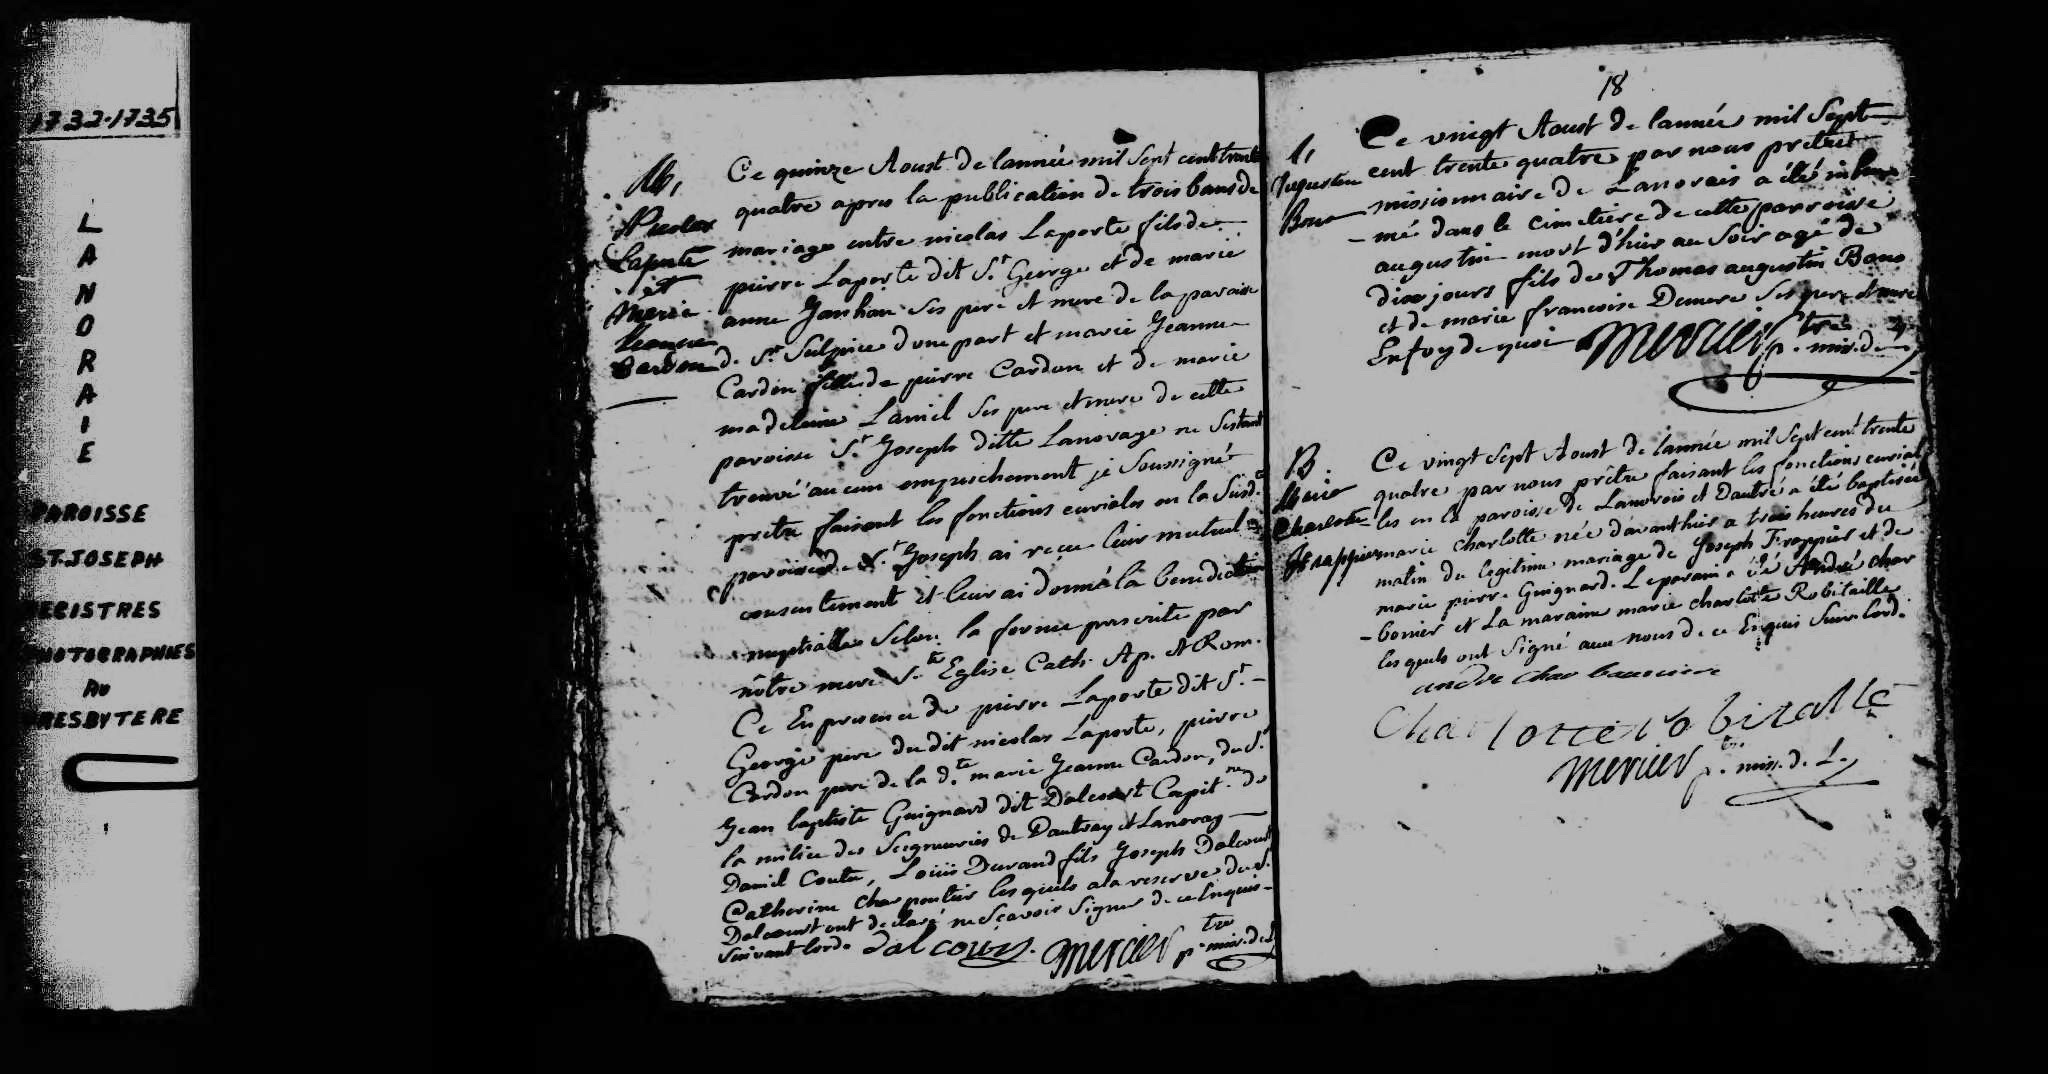 1732-1735
LANORAIE
PAROISSE
ST. JOSEPH
REGISTRES
PHOTOGRAPHIES
AU
PRESBYTERE
M,
Laporte
et
Marie
Jeanne
Cardon
Ce quinze Aoust de lannée mil Sept cent trente
quatre apres la publication de trois bans de
mariage entre nicolas Laporte fils de
pierre Laporte dit St. George et de marie
anne ses pere et mere de la paroisse
de St. Sulpice d'une part et marie Jeanne
Cardon fille de pierre Cardon et de marie
madeleine Lamiel ses pere et mere de cette
paroisse St. Joseph ditte Lanoraye ne sestant
trouvé aucun empeschement je Soussigné
pretre faisant les fonctions curiales en la Susd.te
paroisse de St. Joseph ai recu leur mutuel
consentement et leur ai donné la benediction
nuptialle selon la forme prescrite par
nôtre mere Ste. Eglise Cath. Ap. & Rom.
Ce En presence de pierre Laporte dit St.
George pere du dit nicolas Laporte, pierre
Cardon pere de la d.te marie Jeanne Cardon, du S.r
Jean baptiste Guignard dit Dalcourt Capit.ne de
la milice des Seigneuries de Dautray et Lanoray
Daniel Coutu, Louis Durand fils Joseph Dalcourt
Catherine Charpentier lesquels a la reserve du S.r
Dalcourt ont declaré ne scavoir signer de ce Enquis
suivant lord.
Dalcourt. Mercier p.tre miss. de L.
18
Augustin
Bono
Ce vingt Aoust de lannée mil Sept
cent trente quatre par nous pretre
missionnaire de Lanorais a été inhu
-mé dans le cimetiere de cette parroisse
augustin mort d'hier au soir agé de
dix jours fils de Thomas augustin Bono
et de marie francoise Demere ses pere et mere
En foy de quoi Mercier p.tre miss. de L.
B.
Marie
Charlotte
Frappier
Ce vingt Sept Aoust de lannée mil Sept cent trente
quatre par nous prêtre faisant les fonctions curial
les en la paroisse de Lanorois et Dautré a été baptisée
marie charlotte née d'avanthier a trois heures du
matin du legitime mariage de Joseph Frappier et de
marie pierre Guignard. Le parain a été André char
-bonier et La maraine marie charlotte Robitaille
lesquels ont signé avec nous de ce Enquis Suiv. lord.
andre charbaunier
Charlotte Robitalle
Mercier p.tre miss. de L.